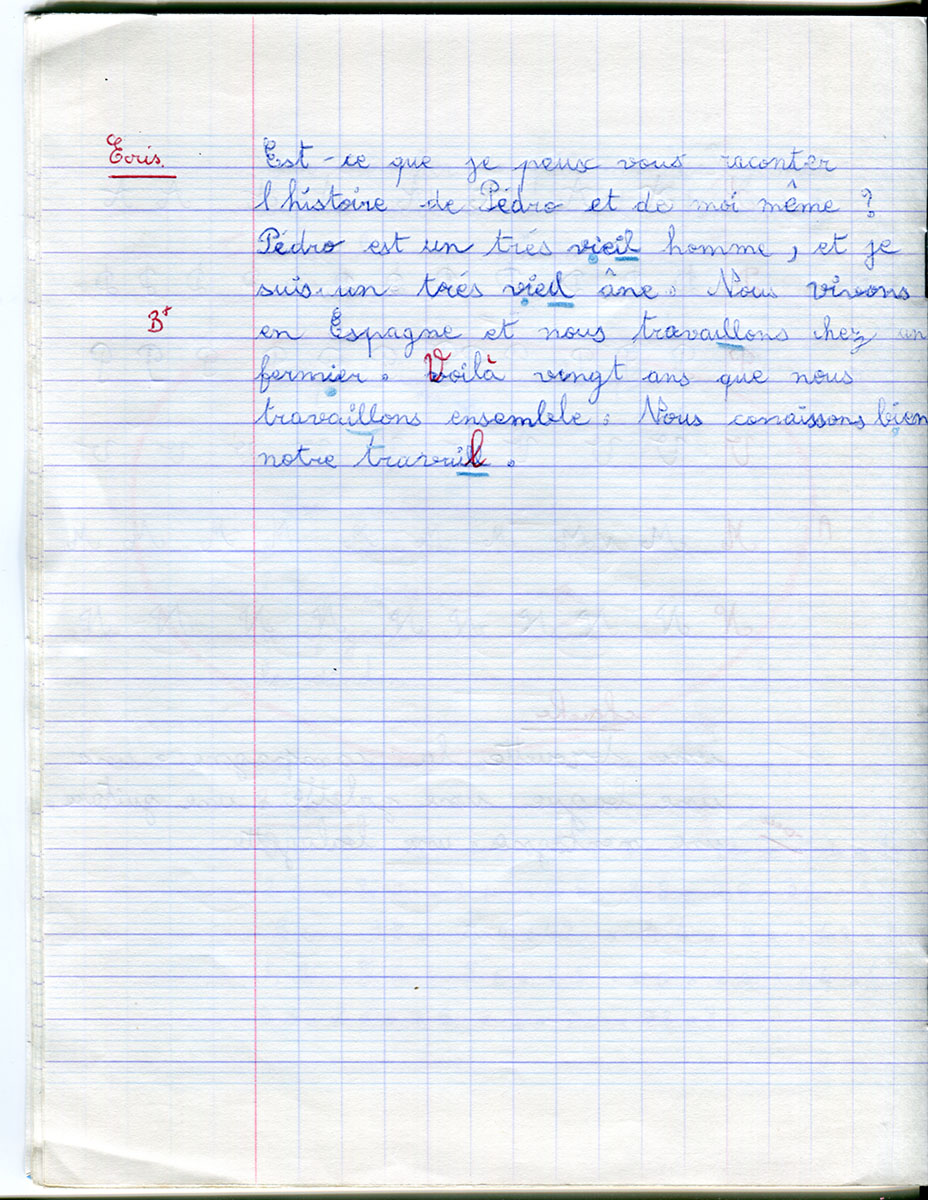 Ecris.
Est-ce que je peux vous raconter
l histoire de Pédro et de moi même ?
Pédro est un trés vieil homme, et je
suis un trés vieil âne. Nous vivons
B+
en Espagne et nous travaillons chez un
fermier. Voilà vingt ans que nous
travaillons ensemble. Nous conaissons bien
notre travail.